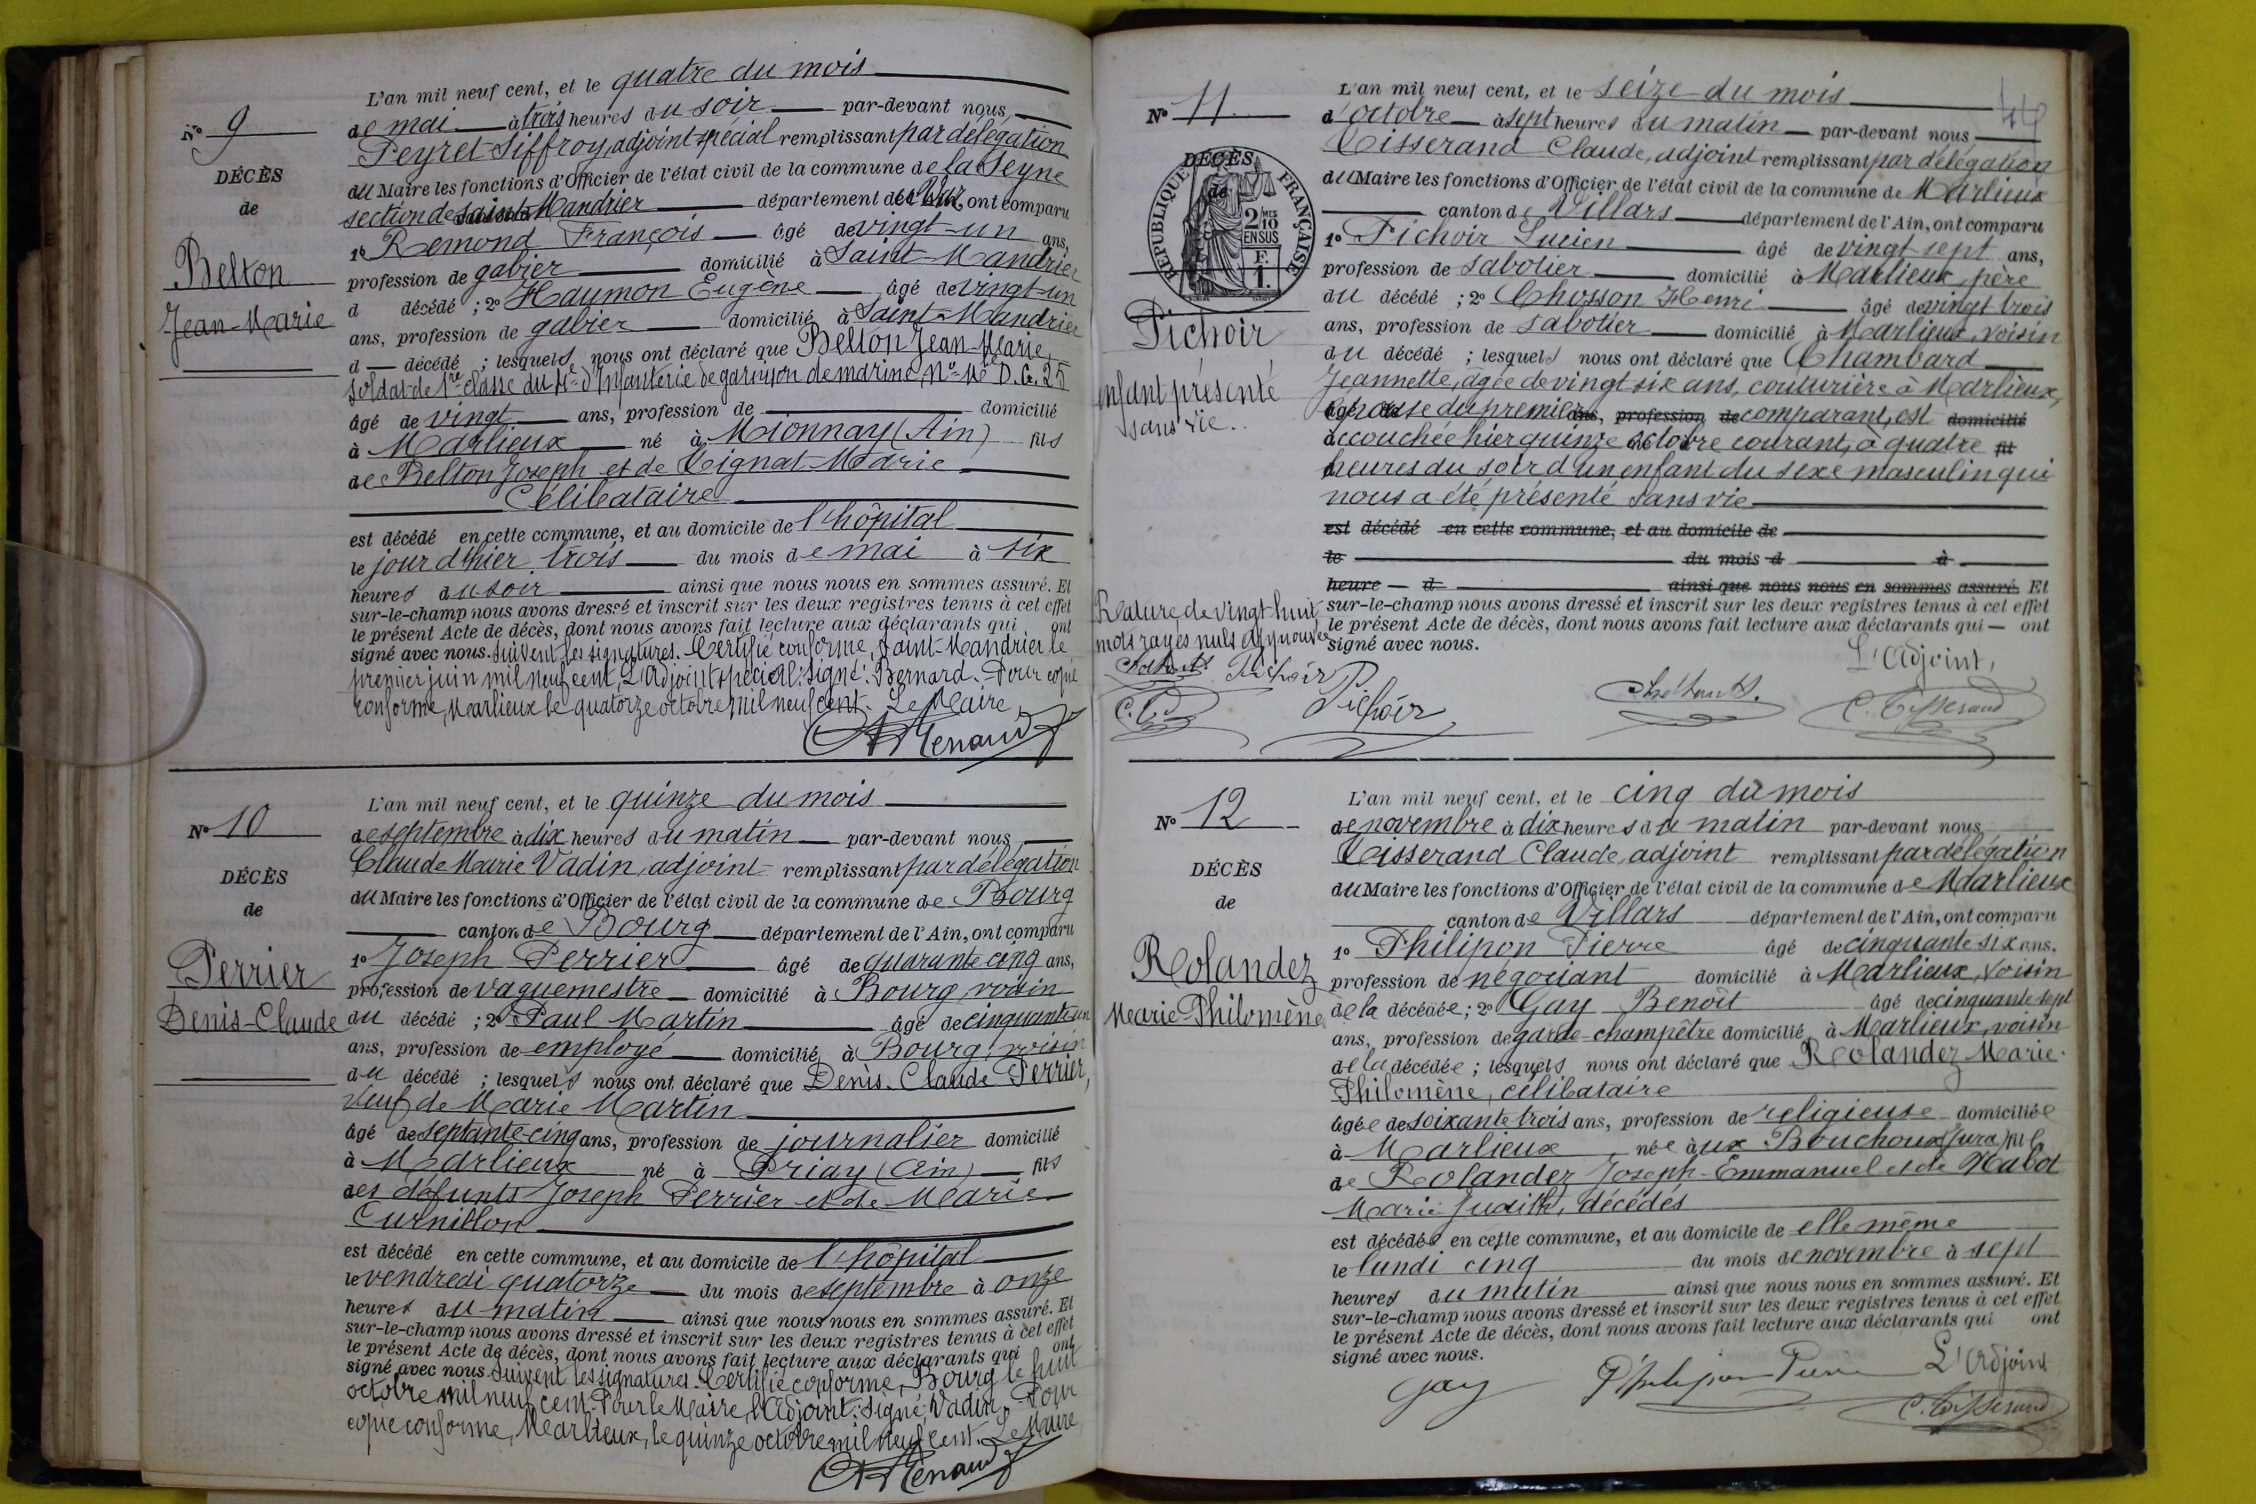 N° 9
DÉCÈS
de
Belton
Jean-Marie
L'an mil neuf cent, et le quatre du mois
de mai à trois heures du soir par-devant nous
Peyret Siffroy, adjoint spécial remplissant par délégation
du Maire les fonctions d'Officier de l'état civil de la commune de la Seyne
section de Saint Mandrier département du Var, ont comparu
1° Remond François âgé de vingt-un ans,
profession de gabier domicilié à Saint-Mandrier
d décédé ; 2° Haymon Eugène âgé de vingt-un
ans, profession de gabier domicilié à Saint-Mandrier
d décédé ; lesquels nous ont déclaré que Belton Jean-Marie,
soldat de 1re classe du 4e d'Infanterie de garnison de marine, N° Me D. G. 25
âgé de vingt ans, profession de domicilié
à Marlieux né à Mionnay (Ain) fils
de Belton Joseph et de Tignat Marie
Célibataire
est décédé en cette commune, et au domicile de l'hôpital
le jour d'hier trois du mois de mai à six
heures du soir ainsi que nous nous en sommes assuré. Et
sur-le-champ nous avons dressé et inscrit sur les deux registres tenus à cet effet
le présent Acte de décès, dont nous avons fait lecture aux déclarants qui ont
signé avec nous. Suivent les signatures. Certifié conforme, Saint-Mandrier le
premier juin mil neuf cent, L'Adjoint spécial: signé: Bernard. Pour copie
conforme, Marlieux le quatorze octobre mil neuf cent. Le Maire,
Renaud
N° 10
DÉCÈS
de
Perrier
Denis-Claude
L'an mil neuf cent, et le quinze du mois
de septembre à dix heures du matin par-devant nous
Claude Marie Vadin, adjoint remplissant par délégation
du Maire les fonctions d'Officier de l'état civil de la commune de Bourg
canton de Bourg département de l'Ain, ont comparu
1° Joseph Perrier âgé de quarante cinq ans,
profession de vaguemestre domicilié à Bourg, voisin
du décédé ; 2° Paul Martin âgé de cinquante un
ans, profession de employé domicilié à Bourg, voisin
du décédé ; lesquels nous ont déclaré que Denis-Claude Perrier,
veuf de Marie Martin
âgé de septante-cinq ans, profession de journalier domicilié
à Marlieux né à Priay (Ain) fils
des défunts Joseph Perrier et de Marie
Curnillon
est décédé en cette commune, et au domicile de l'hôpital
le vendredi quatorze du mois de septembre à onze
heures du matin ainsi que nous nous en sommes assuré. Et
sur-le-champ nous avons dressé et inscrit sur les deux registres tenus à cet effet
le présent Acte de décès, dont nous avons fait lecture aux déclarants qui ont
signé avec nous. Suivent les signatures. Certifié conforme, Bourg le huit
octobre mil neuf cent. Pour le Maire, l'Adjoint: signé: Vadin. Pour
copie conforme, Marlieux, le quinze octobre mil neuf cent. Le Maire
Renaud
44
N° 11
DÉCÈS
de
RÉPUBLIQUE FRANÇAISE
2 MES
10
EN SUS
F.
1.
Pichoir
enfant présenté
sans vie.
L'an mil neuf cent, et le seize du mois
d'octobre à sept heures du matin par-devant nous
Tisserand Claude, adjoint remplissant par délégation
du Maire les fonctions d'Officier de l'état civil de la commune de Marlieux
canton de Villars département de l'Ain, ont comparu
1° Pichoir Lucien âgé de vingt sept ans,
profession de sabotier domicilié à Marlieux, père
du décédé ; 2° Chosson Henri âgé de vingt trois
ans, profession de sabotier domicilié à Marlieux, voisin
du décédé ; lesquels nous ont déclaré que Chambard
Jeannette, âgée de vingt six ans, couturière à Marlieux,
âgé de épouse du premier ans, profession de comparant, est domicilié
à accouchée hier quinze octobre courant, à quatre fil
heures du soir d'un enfant du sexe masculin qui
nous a été présenté sans vie
est décédé en cette commune, et au domicile de
le du mois d à
heure d ainsi que nous nous en sommes assuré. Et
sur-le-champ nous avons dressé et inscrit sur les deux registres tenus à cet effet
le présent Acte de décès, dont nous avons fait lecture aux déclarants qui ont
signé avec nous.
Rature de vingt huit
mots rayés nuls approuvée
Pichoir
C. T.
Pichoir
L'Adjoint,
C. Tisserand
N° 12
DÉCÈS
de
Rolandez
Marie-Philomène
L'an mil neuf cent, et le cinq du mois
de novembre à dix heures du matin par-devant nous
Tisserand Claude, adjoint remplissant par délégation
du Maire les fonctions d'Officier de l'état civil de la commune de Marlieux
canton de Villars département de l'Ain, ont comparu
1° Philipon Pierre âgé de cinquante six ans,
profession de négociant domicilié à Marlieux, voisin
de la décédée ; 2° Gay Benoît âgé de cinquante sept
ans, profession de garde-champêtre domicilié à Marlieux, voisin
de la décédée ; lesquels nous ont déclaré que Rolandez Marie-
Philomène, célibataire
âgée de soixante trois ans, profession de religieuse domiciliée
à Marlieux née aux Bouchoux (Jura) fille
de Rolandez Joseph-Emmanuel et de Mabot
Marie Judith, décédés
est décédée en cette commune, et au domicile de elle même
le lundi cinq du mois de novembre à sept
heures du matin ainsi que nous nous en sommes assuré. Et
sur-le-champ nous avons dressé et inscrit sur les deux registres tenus à cet effet
le présent Acte de décès, dont nous avons fait lecture aux déclarants qui ont
signé avec nous.
Gay Philipon Pierre L'Adjoint
C. Tisserand